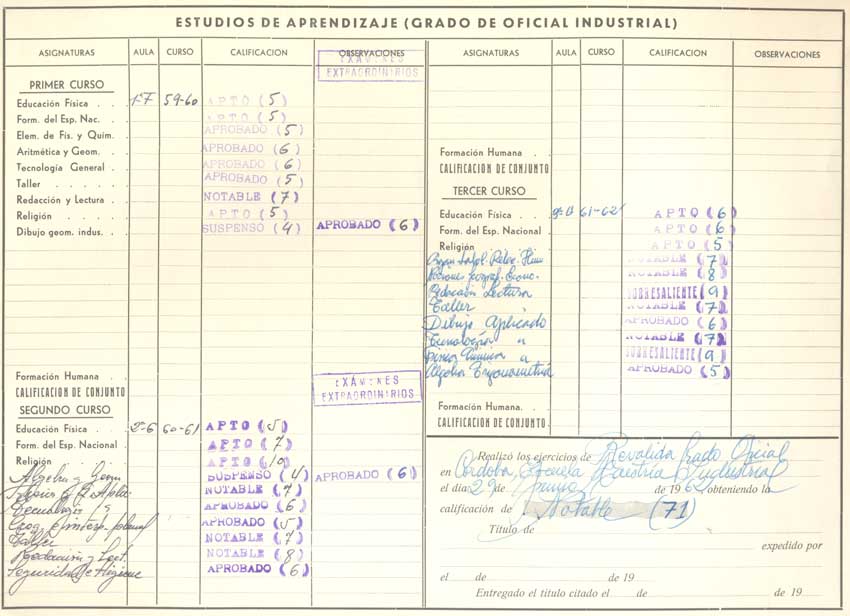 ESTUDIOS DE APRENDIZAJE (GRADO DE OFICIAL INDUSTRIAL)
ASIGNATURAS AULA CURSO CALIFICACION OBSERVACIONES
EXAMENES
EXTRAORDINARIOS
PRIMER CURSO
Educación Física . . 1-F 59-60 APTO (5)
Form. del Esp. Nac. . APTO (5)
Elem. de Fis. y Quím. APROBADO (5)
Aritmética y Geom. . APROBADO (6)
Tecnología General . APROBADO (6)
Taller . . . . . APROBADO (5)
Redacción y Lectura . NOTABLE (7)
Religión . . . . APTO (5)
Dibujo geom. indus. . SUSPENSO (4) APROBADO (6)
Formación Humana .
CALIFICACION DE CONJUNTO
EXAMENES
EXTRAORDINARIOS
SEGUNDO CURSO
Educación Física . . 2-6 60-61 APTO (5)
Form. del Esp. Nacional . APTO (7)
Religión . . . . APTO (10)
Algebra y Geom SUSPENSO (4) APROBADO (6)
NOTABLE (7)
Tecnología APROBADO (6)
APROBADO (5)
Taller NOTABLE (7)
Redacción y Lect. NOTABLE (8)
Seguridad e Higiene APROBADO (6)
ASIGNATURAS AULA CURSO CALIFICACION OBSERVACIONES
Formación Humana . .
CALIFICACION DE CONJUNTO
TERCER CURSO
Educación Física . . 61-62 APTO (6)
Form. del Esp. Nacional . APTO (6)
Religión . . . . APTO (5)
NOTABLE (7)
Nociones Geograf. Econo. NOTABLE (8)
Redacción Lectura SOBRESALIENTE (9)
Taller NOTABLE (7)
Dibujo Aplicado APROBADO (6)
Tecnología NOTABLE (7)
Física Química SOBRESALIENTE (9)
Algebra Trigonometría APROBADO (5)
Formación Humana. .
CALIFICACION DE CONJUNTO.
Realizó los ejercicios de Revalida Grado Oficial
en Córdoba, Escuela Maestría Industrial
el día 29 de junio de 1962 obteniendo la
calificación de Notable (71)
Título de
expedido por
el de de 19
Entregado el título citado el de de 19